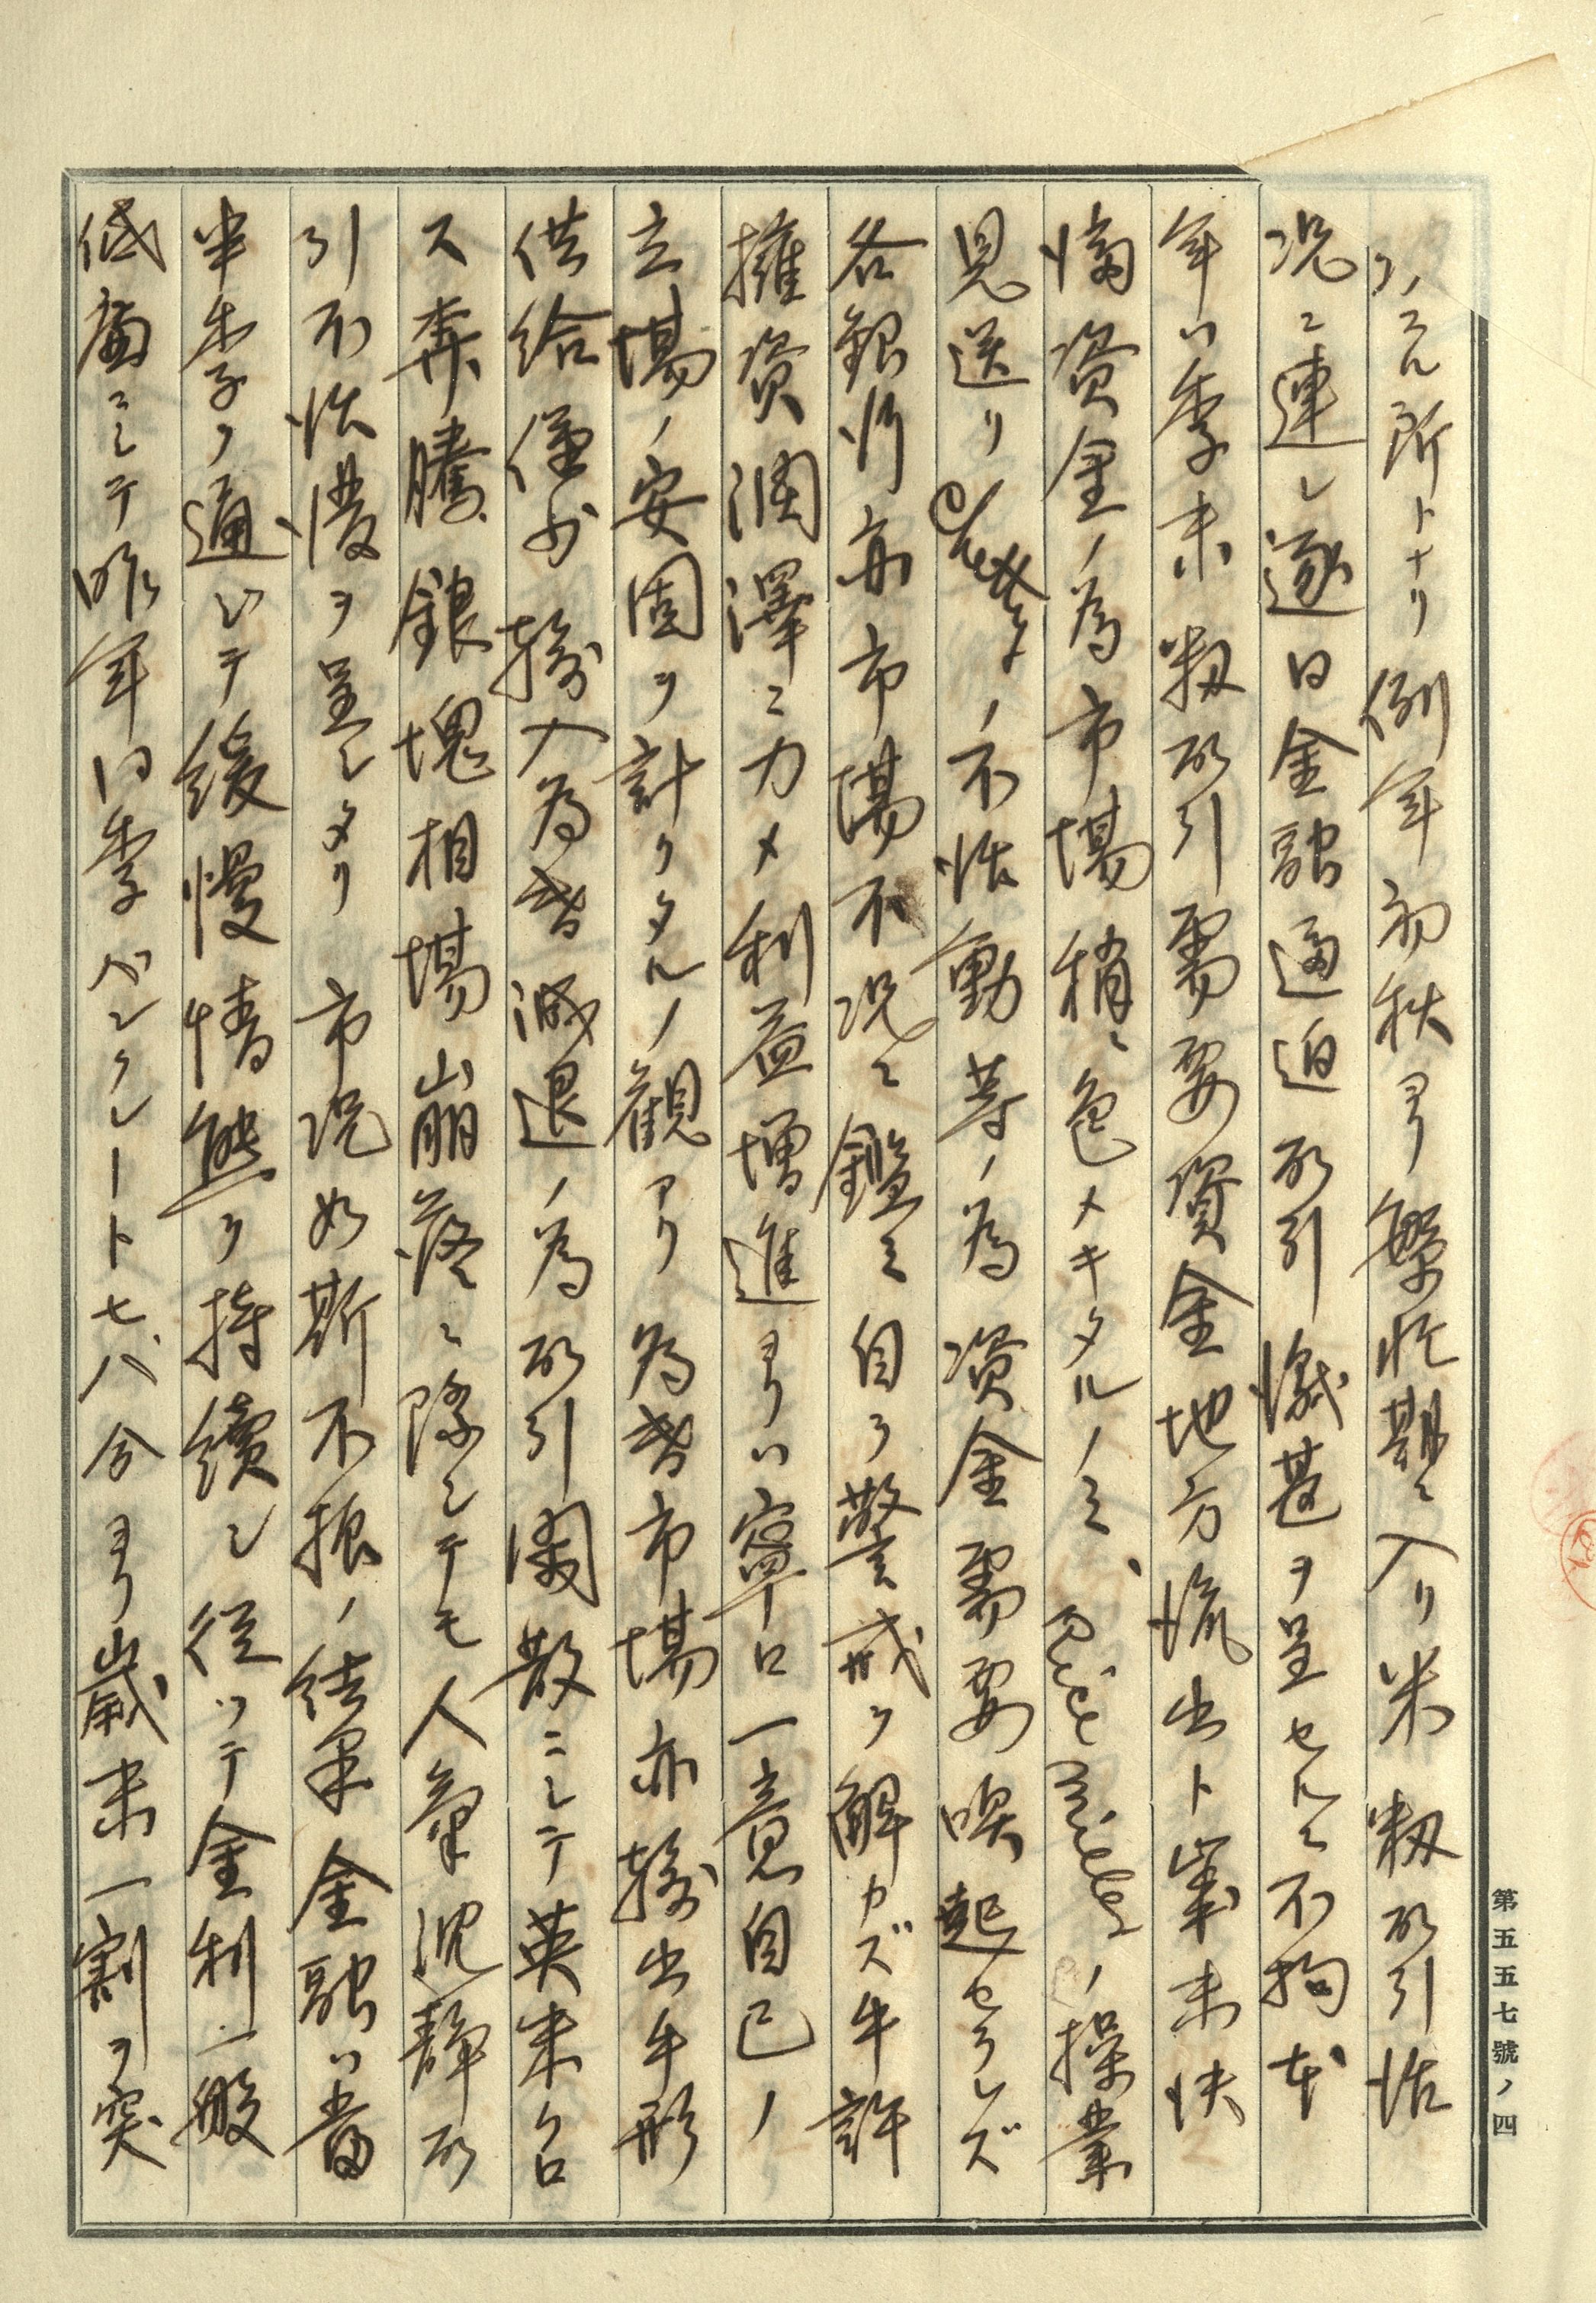 ノスル所トナリ例年初秋ヨリ繁忙期ニ入リ米籾取引活
況ニ連レ逐日金融逼迫取引激甚ヲ呈セルニ不拘本
年ハ季末籾取引需要資金地方流出ト歳末決
済資金ノ為市場稍々色メキタルノミ、Rice millsノ操業
見送リ ノ不活動等ノ為資金需要喚起セラレズ
各銀行亦市場不況ニ鑑ミ自ラ警戒ヲ解カズ只許
擁資潤澤ニカメ利益増進ヨリハ寧ロ一意自己ノ
立場ノ安固ヲ計リタルノ観アリ為替市場亦輸出手形
供給僅少輸入為替減退ノ為取引閑散ニシテ英米クロ
ス奔騰銀塊相場崩落ニ際シテモ人気沈静取
引不活溌ヲ呈シタリ 市況如斯不振ノ結果金融ハ當
半季ヲ通ジテ緩慢情態ヲ持續シ従ツテ金利一般
低廉ニシテ昨年同季バンクレート七八分ヨリ歳末一割ヲ突
第五五七號ノ四